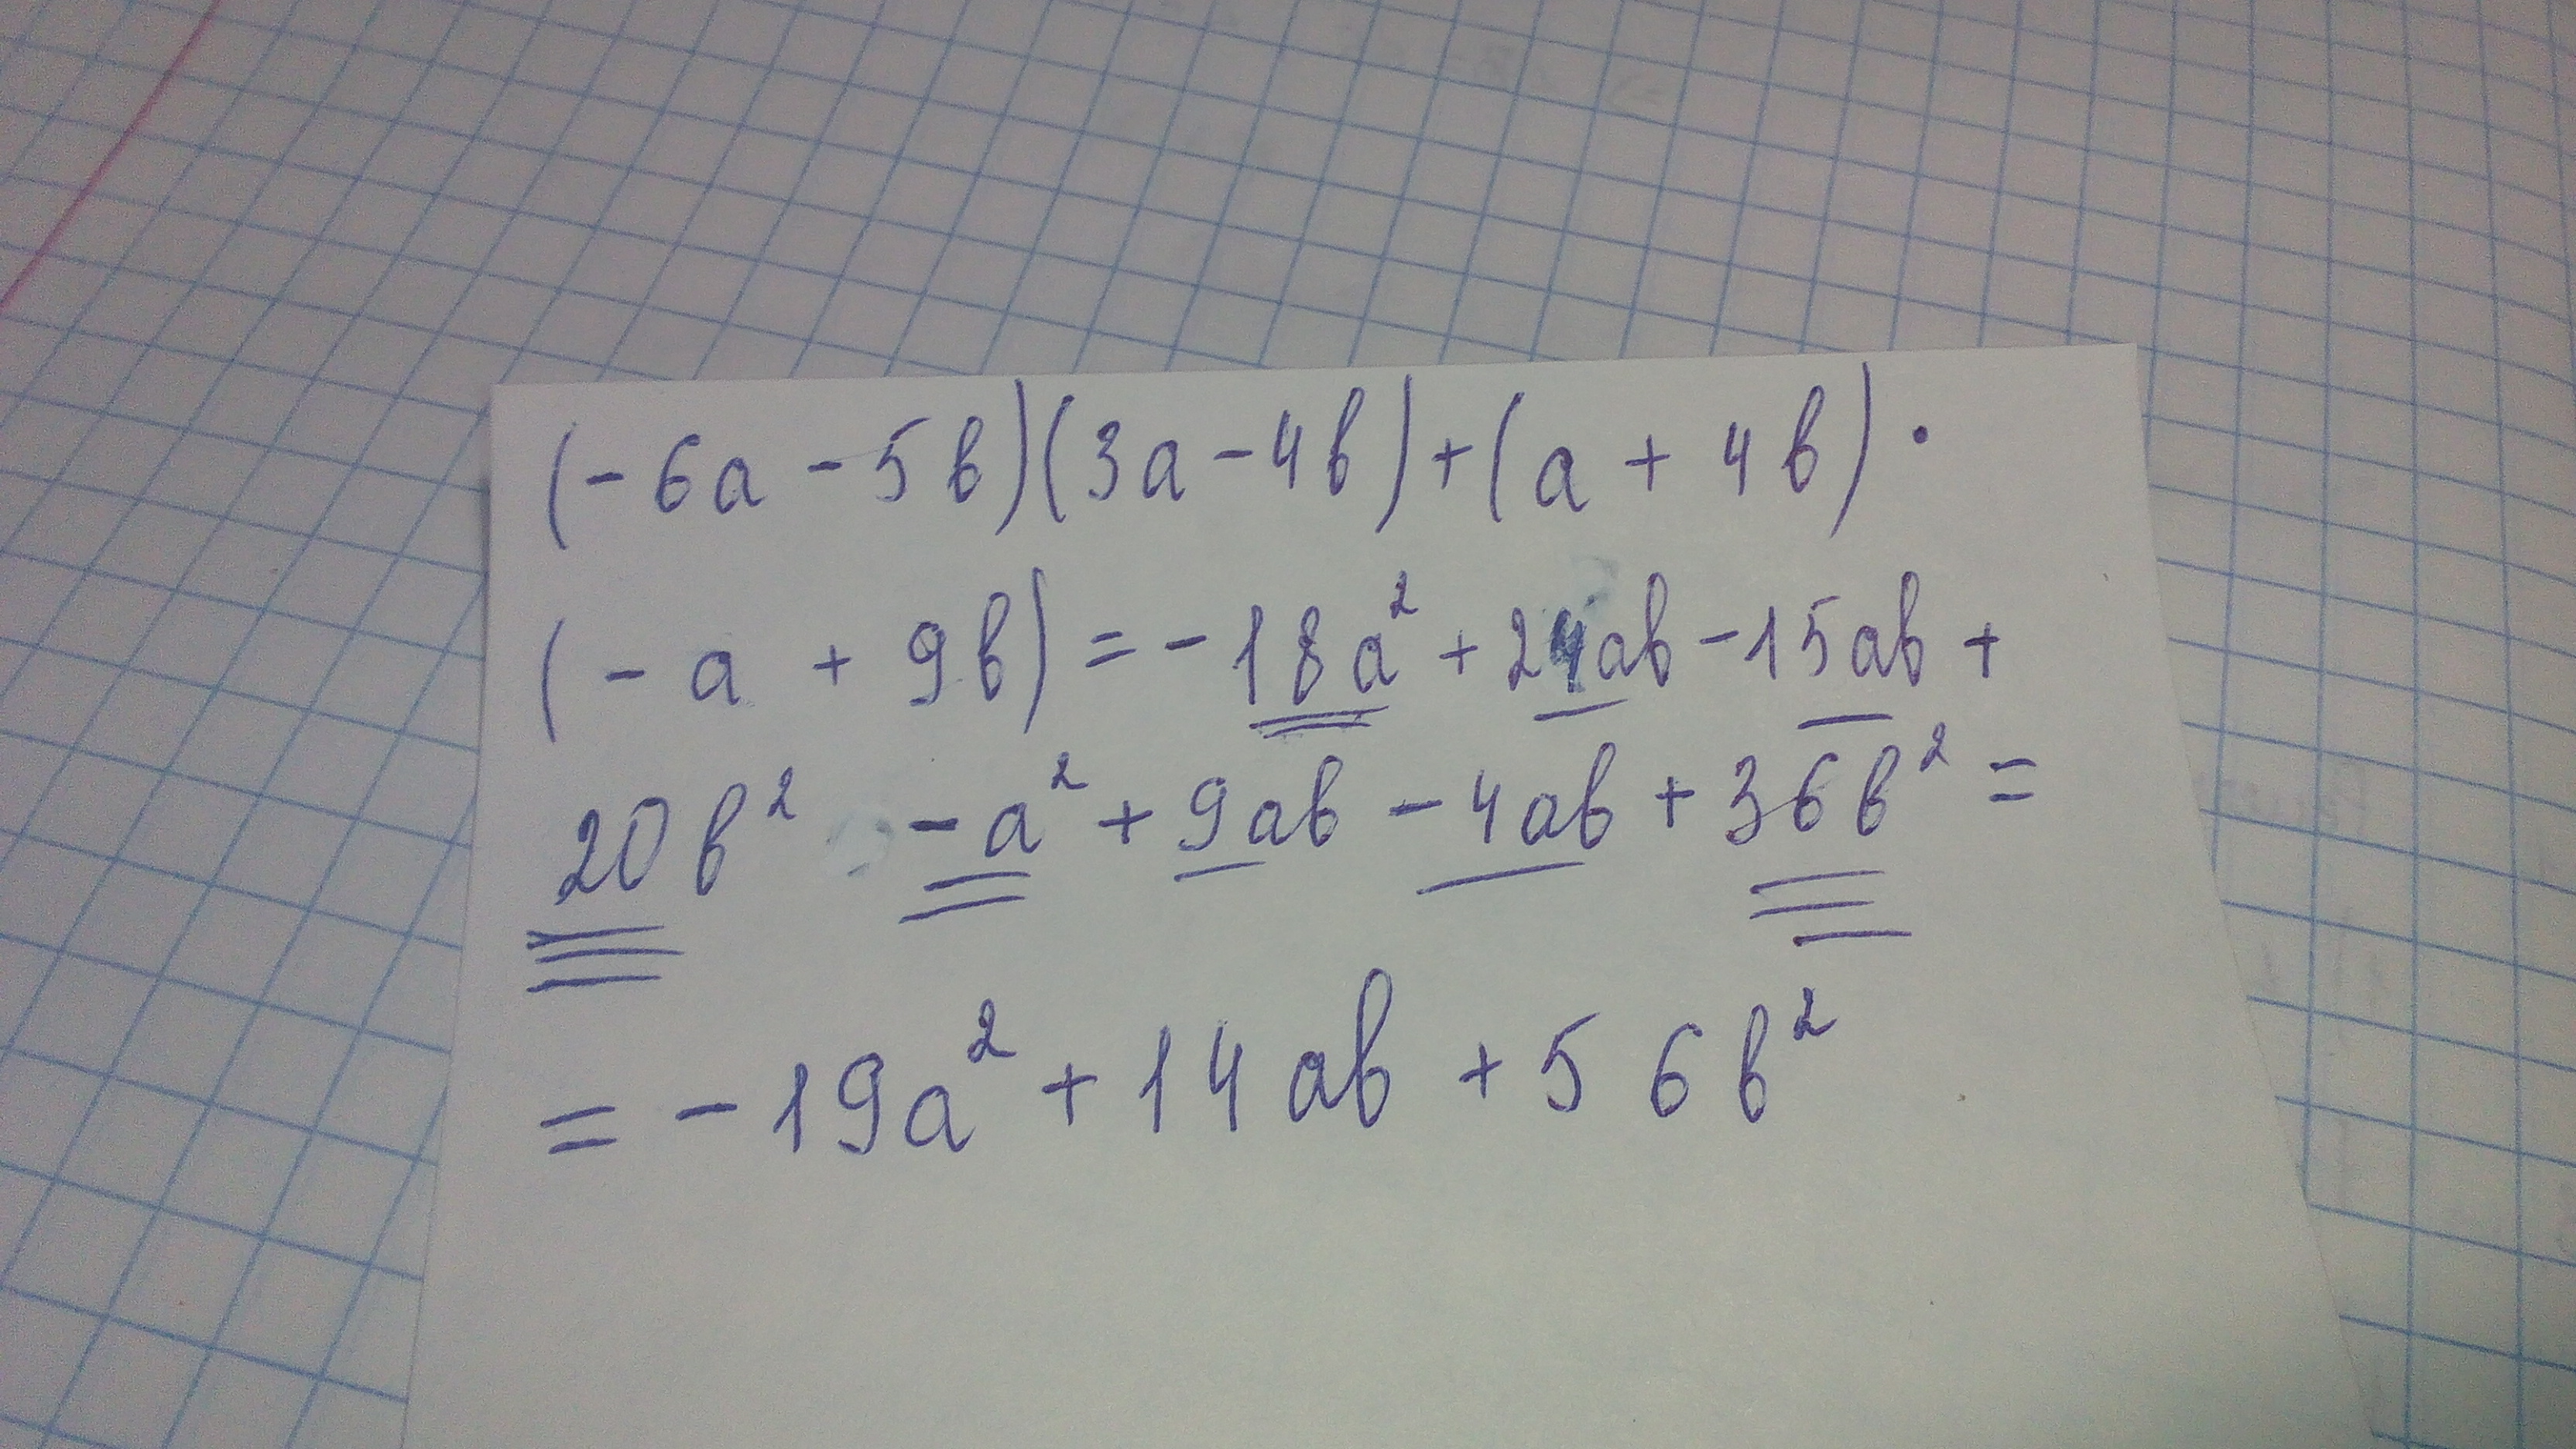 (-6a - 5b)(3a - 4b) + (a + 4b) ·
(- a + 9b) = - 18a² + 24ab - 15ab +
20b² - a² + 9ab - 4ab + 36b² =
= - 19a² + 14ab + 56b²